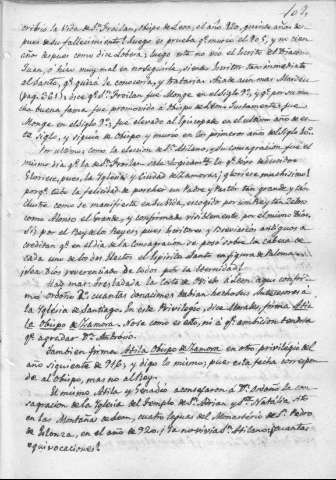 101.
cribio la Vida de Sn. Froilan, Obispo de Leon, el año 920, quince años des-
pues de su fallecimiento? Luego se prueba qe. murió el 905, y no cien
año despues como dice Lobera; luego este no vió el escrito del Diacono
Juan, ó hizo muy mal en no seguirle, siendo Escritor tan inmediato
al Santo, qe. quizá le conoceria, y trataria
(pag. 321.) dice qe. Sn. Froilan fue Monge en el siglo 9º. y qe. por su mu-
cha buena fama, fue promovido á Obispo de Leon: Justamente fue
Monge en el siglo 9º., fue elevado al Episcopado en el ultimo año de es-
te siglo, y siguió de Obispo y murió en los primeros años del siglo 10º.
Por ultimo como la eleccion de Sn. Atilano, y su consagracion fue el
mismo dia qe. la de Sn. Froilan
Gloriese, pues, la Iglesia y Ciudad de Zamora; gloriese muchisimo!
porqe. tubo la felicidad de poseher un Padre y Pastor tan grande y tan
Ilustre como se manifiesta en su Vida, escogido por un Rey tan Zeloso
como Alonso el Grande, y confirmado visiblemente por el mismo Dios.
Si, por el Rey de los Reyes, pues Escritores y Breviarios antiguos a-
creditan qe. en el dia de la Consagracion se posó sobre la Cabeza de
cada uno de los dos Electos el Espiritu Santo en figura de Paloma.
¡Sea Dios reverenciado de todos por la eternidad!
Hay mas: trasladada la Corte de Oviedo á Leon aqui confir-
mó Ordoño 2º. cuantas donaciones habian hecho sus Antecesores a
la Iglesia de Santiago. En este Privilegio, dice Morales, firma Ati-
la Obispo de Zamora. No se como es esto, ni á qe. ambicion tendria
qe. agradar Dn. Ambrosio.
Tambien firma Atila Obispo de Zamora en otro privilegio del
año siguiente de 916, y digo lo mismo; pues esta fecha correspon-
de al Obispo, mas no al Rey.
El mismo Atila y Genadio aconsejaron á Dn. Ordoño la con-
sagracion de la Iglesia del Templo de Sn. Adrian y Sta. Natalia sito
en las Montañas de Leon, cuatro leguas del Monasterio de Sn. Pedro
de Eslonza, en el año de 920. ¡Ya no vivia Sn. Atilano; ¡cuantas
equivocaciones!